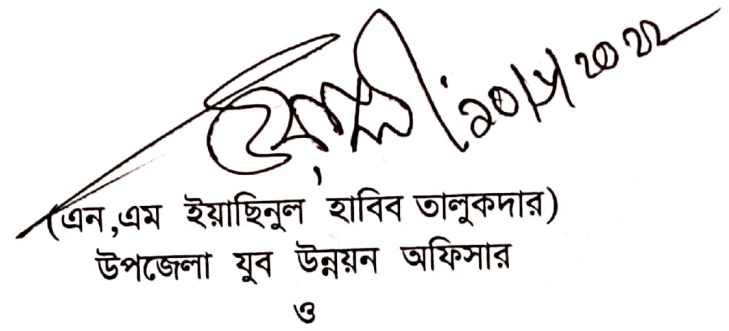 (এন,এম ইয়াছিনুল হাবিব তালুকদার)
উপজেলা যুব উন্নয়ন অফিসার
ও